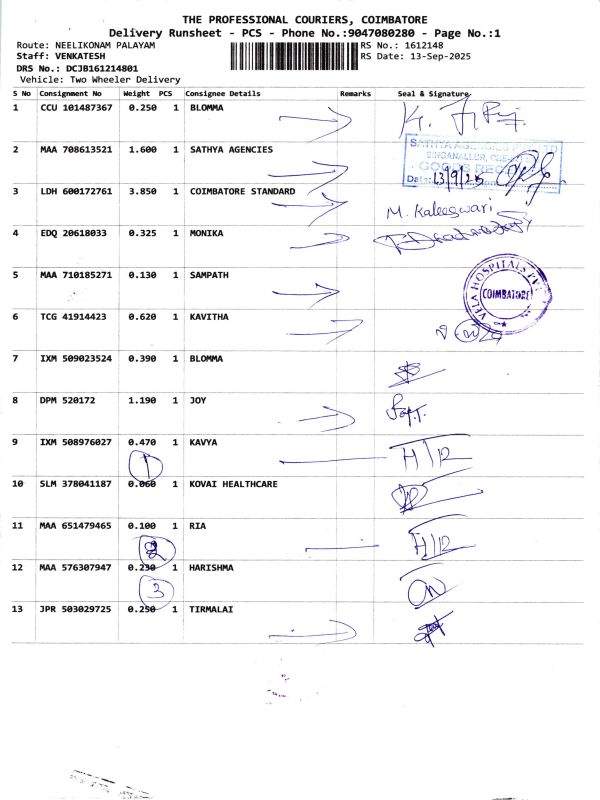 THE PROFESSIONAL COURIERS, COIMBATORE
Delivery Runsheet - PCS - Phone No.:9047080280 - Page No.:1
Route: NEELIKONAM PALAYAM RS No.: 1612148
Staff: VENKATESH RS Date: 13-Sep-2025
DRS No.: DCJB161214801
Vehicle: Two Wheeler Delivery
S No Consignment No Weight PCS Consignee Details Remarks Seal & Signature
1 CCU 101487367 0.250 1 BLOMMA
2 MAA 708613521 1.600 1 SATHYA AGENCIES
SATHYA AGENCIES PVT LTD
SINGANALLUR,
GOODS
Date: 13/9/25
3 LDH 600172761 3.850 1 COIMBATORE STANDARD
M. Kaleeswari
4 EDQ 20618033 0.325 1 MONIKA
5 MAA 710185271 0.130 1 SAMPATH
HOSPITALS
COIMBATORE
6 TCG 41914423 0.620 1 KAVITHA
7 IXM 509023524 0.390 1 BLOMMA
8 DPM 520172 1.190 1 JOY
9 IXM 508976027 0.470 1 KAVYA H/12
1
10 SLM 378041187 0.060 1 KOVAI HEALTHCARE
11 MAA 651479465 0.100 1 RIA H/12
2
12 MAA 576307947 0.230 1 HARISHMA
3
13 JPR 503029725 0.250 1 TIRMALAI